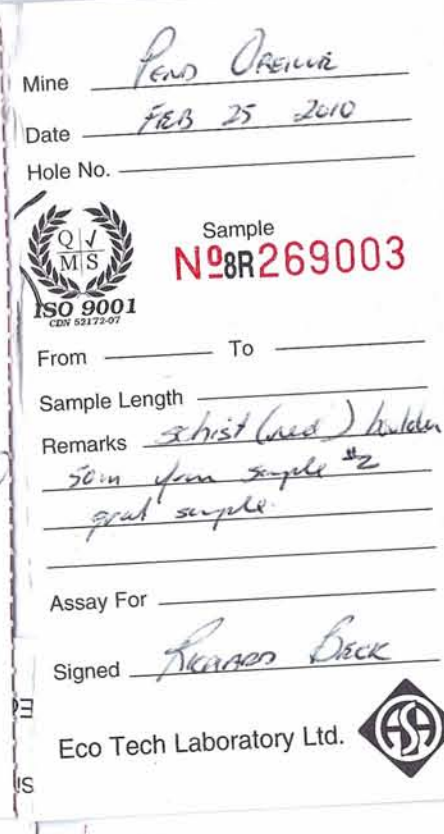 Mine PEND OREILLE
Date FEB 25 2010
Hole No.
Q √
M S
ISO 9001
CDN 52172-07
Sample
Nº8R269003
From To
Sample Length
Remarks schist (red) boulder
50m from sample #2
grab sample.
Assay For
Signed RICHARD BECK
Eco Tech Laboratory Ltd.